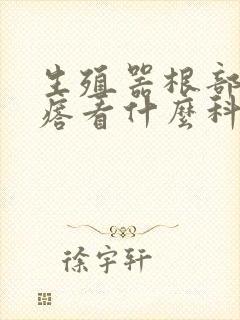 生殖器根部
痞看什麼科
徐宇轩